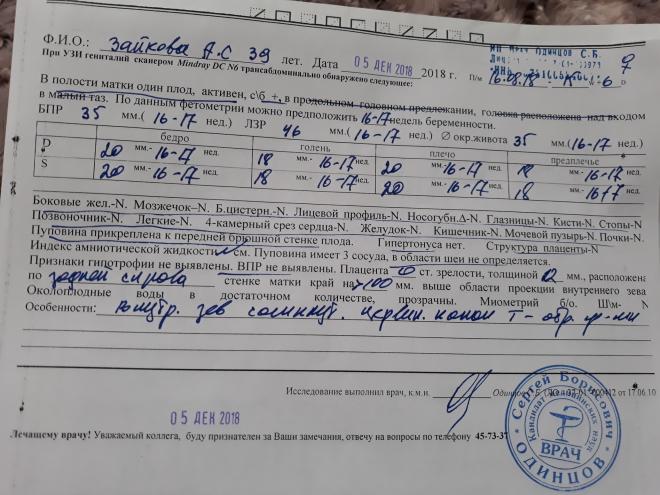 Ф.И.О.: Зайкова А.С 39 лет. Дата 05 ДЕК 2018 2018 г. П/м 16.08.18 - К 6
ИП Врач Одинцов С.Б. 9
При УЗИ гениталий сканером Mindray DC N6 трансабдоминально обнаружено следующее:
В полости матки один плод, активен, с\б +, в продольном, головном предлежании, головка расположена над входом
в малый таз. По данным фетометрии можно предположить 16-17 недель беременности.
БПР 35 мм ( 16-17 нед.) ЛЗР 46 мм.( 16-17 нед.) Ø окр.живота 35 мм.(16-17 нед.)
бедро голень плечо предплечье
D 20 мм.- 16-17 нед. 18 мм.- 16-17 нед. 20 мм.- 16-17 нед. 18 мм.- 16-17 нед.
S 20 мм.- 16-17 нед. 18 мм.- 16-17 нед. 20 мм.- 16-17 нед. 18 мм.- 1617 нед.
Боковые жел.-N. Мозжечок–N. Б.цистерн.-N. Лицевой профиль-N. Носогубн.Δ-N. Глазницы-N. Кисти-N. Стопы-N
Позвоночник-N. Легкие-N. 4-камерный срез сердца-N. Желудок-N. Кишечник-N. Мочевой пузырь-N. Почки-N.
Пуповина прикреплена к передней брюшной стенке плода. Гипертонуса нет. Структура плаценты-N
Индекс амниотической жидкости N см. Пуповина имеет 3 сосуда, в области шеи не определяется.
Признаки гипотрофии не выявлены. ВПР не выявлены. Плацента 0 ст. зрелости, толщиной мм., расположена
по задней стенке матки край на >100 мм. выше области проекции внутреннего зева
Околоплодные воды в достаточном количестве, прозрачны. Миометрий б/о. Ш\м- N
Особенности: внутр. зев сомкнут. цервик. канал Т - обр. ф-мы
Исследование выполнил врач, к.м.н. Одинцов С.Б. от 17.06.10
05 ДЕК 2018
Лечащему врачу! Уважаемый коллега, буду признателен за Ваши замечания, отвечу на вопросы по телефону 45-73-37
Сергей Борисович
Кандидат медицинских наук
ВРАЧ
ОДИНЦОВ